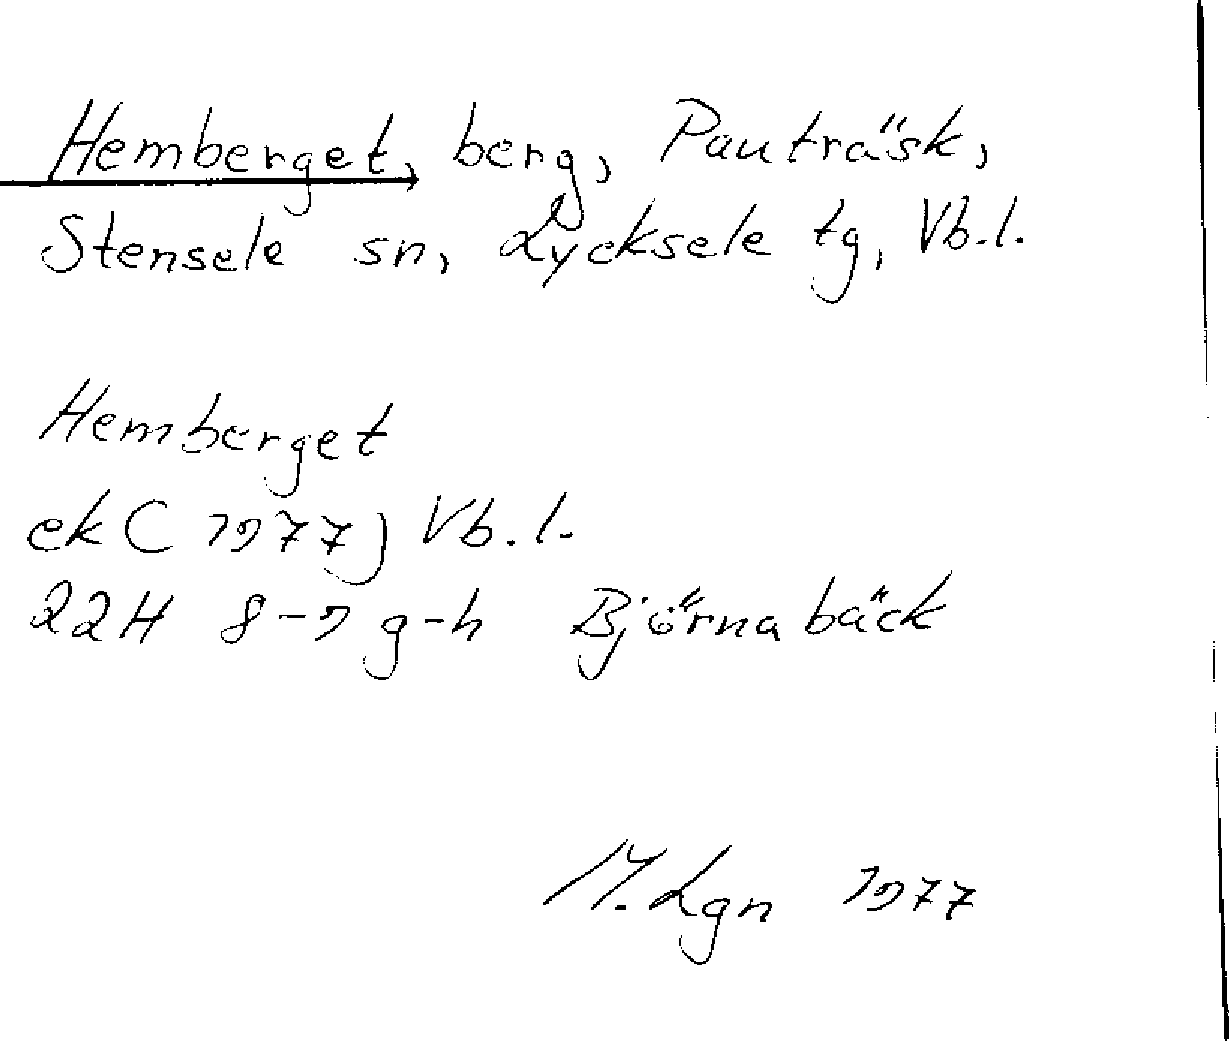 Hemberget, berg, Pauträsk,
Stensele sn, Lycksele tg, Vb.l.
Hemberget
ek (1977) Vb.l.
22H 8-9 g-h Björnabäck
M. Lgn 1977